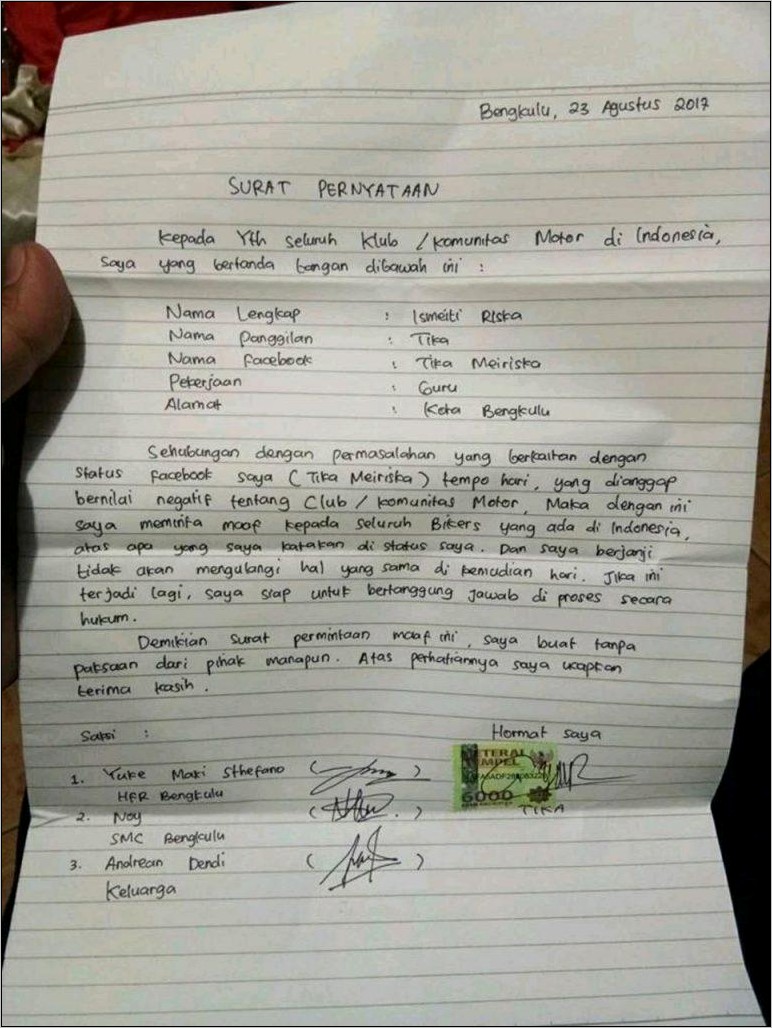 Bengkulu, 23 Agustus 2017
SURAT PERNYATAAN
Kepada Yth seluruh Klub / Komunitas Motor di Indonesia,
Saya yang bertanda tangan dibawah ini :
Nama Lengkap : Ismeiti Riska
Nama Panggilan : Tika
Nama Facebook : Tika Meiriska
Pekerjaan : Guru
Alamat : Kota Bengkulu
Sehubungan dengan permasalahan yang berkaitan dengan
Status Facebook saya (Tika Meiriska) tempo hari, yang dianggap
bernilai negatif tentang Club / Komunitas Motor, Maka dengan ini
saya meminta maaf kepada seluruh Bikers yang ada di Indonesia,
atas apa yang saya katakan di status saya. Dan saya berjanji
tidak akan mengulangi hal yang sama di kemudian hari. Jika ini
terjadi lagi, saya siap untuk bertanggung jawab di proses secara
hukum.
Demikian surat permintaan maaf ini, saya buat tanpa
paksaan dari pihak manapun. Atas perhatiannya saya ucapkan
terima kasih.
Saksi : Hormat saya
TERAI
EMPEL
1. Yuke Maki Sthefano ( )
HFR Bengkulu
6000
2. Noy ( . )
TIKA
SMC Bengkulu
3. Andrean Dendi ( )
Keluarga